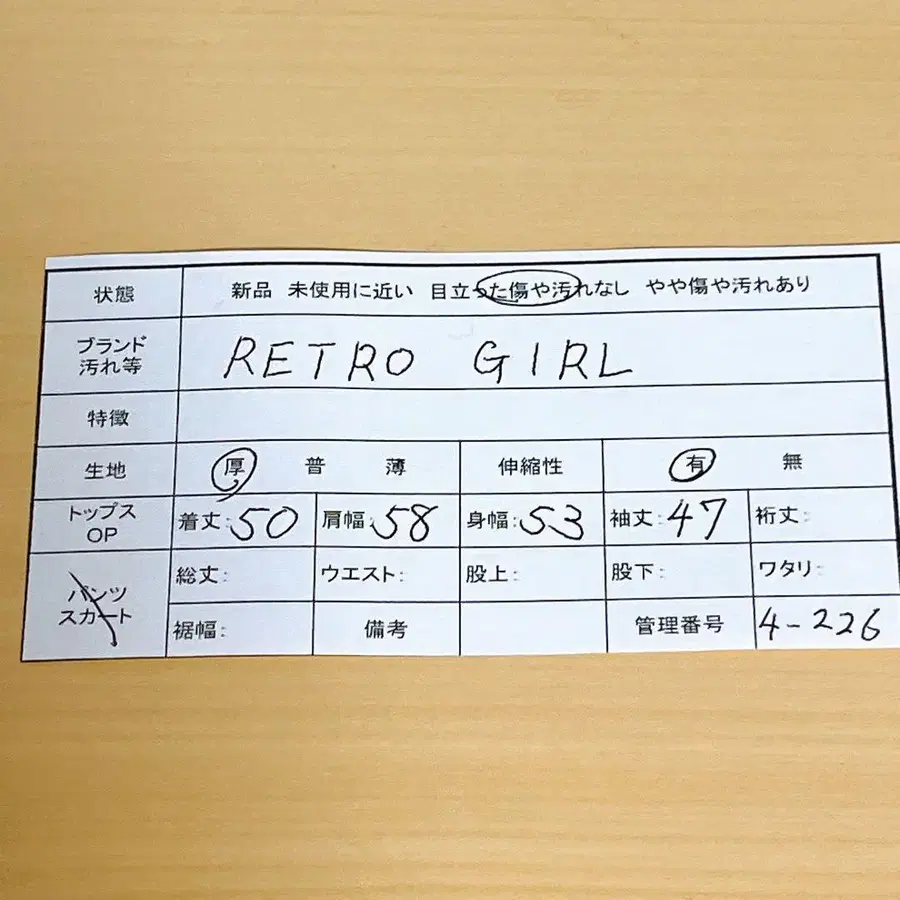 状態 新品 未使用に近い 目立った傷や汚れなし やや傷や汚れあり
ブランド
汚れ等 RETRO GIRL
特徴
生地 厚 普 薄 伸縮性 有 無
トップス
OP 着丈:50 肩幅:58 身幅:53 袖丈:47 裄丈:
パンツ
スカート 総丈: ウエスト: 股上: 股下: ワタリ:
裾幅: 備考 管理番号 4-226